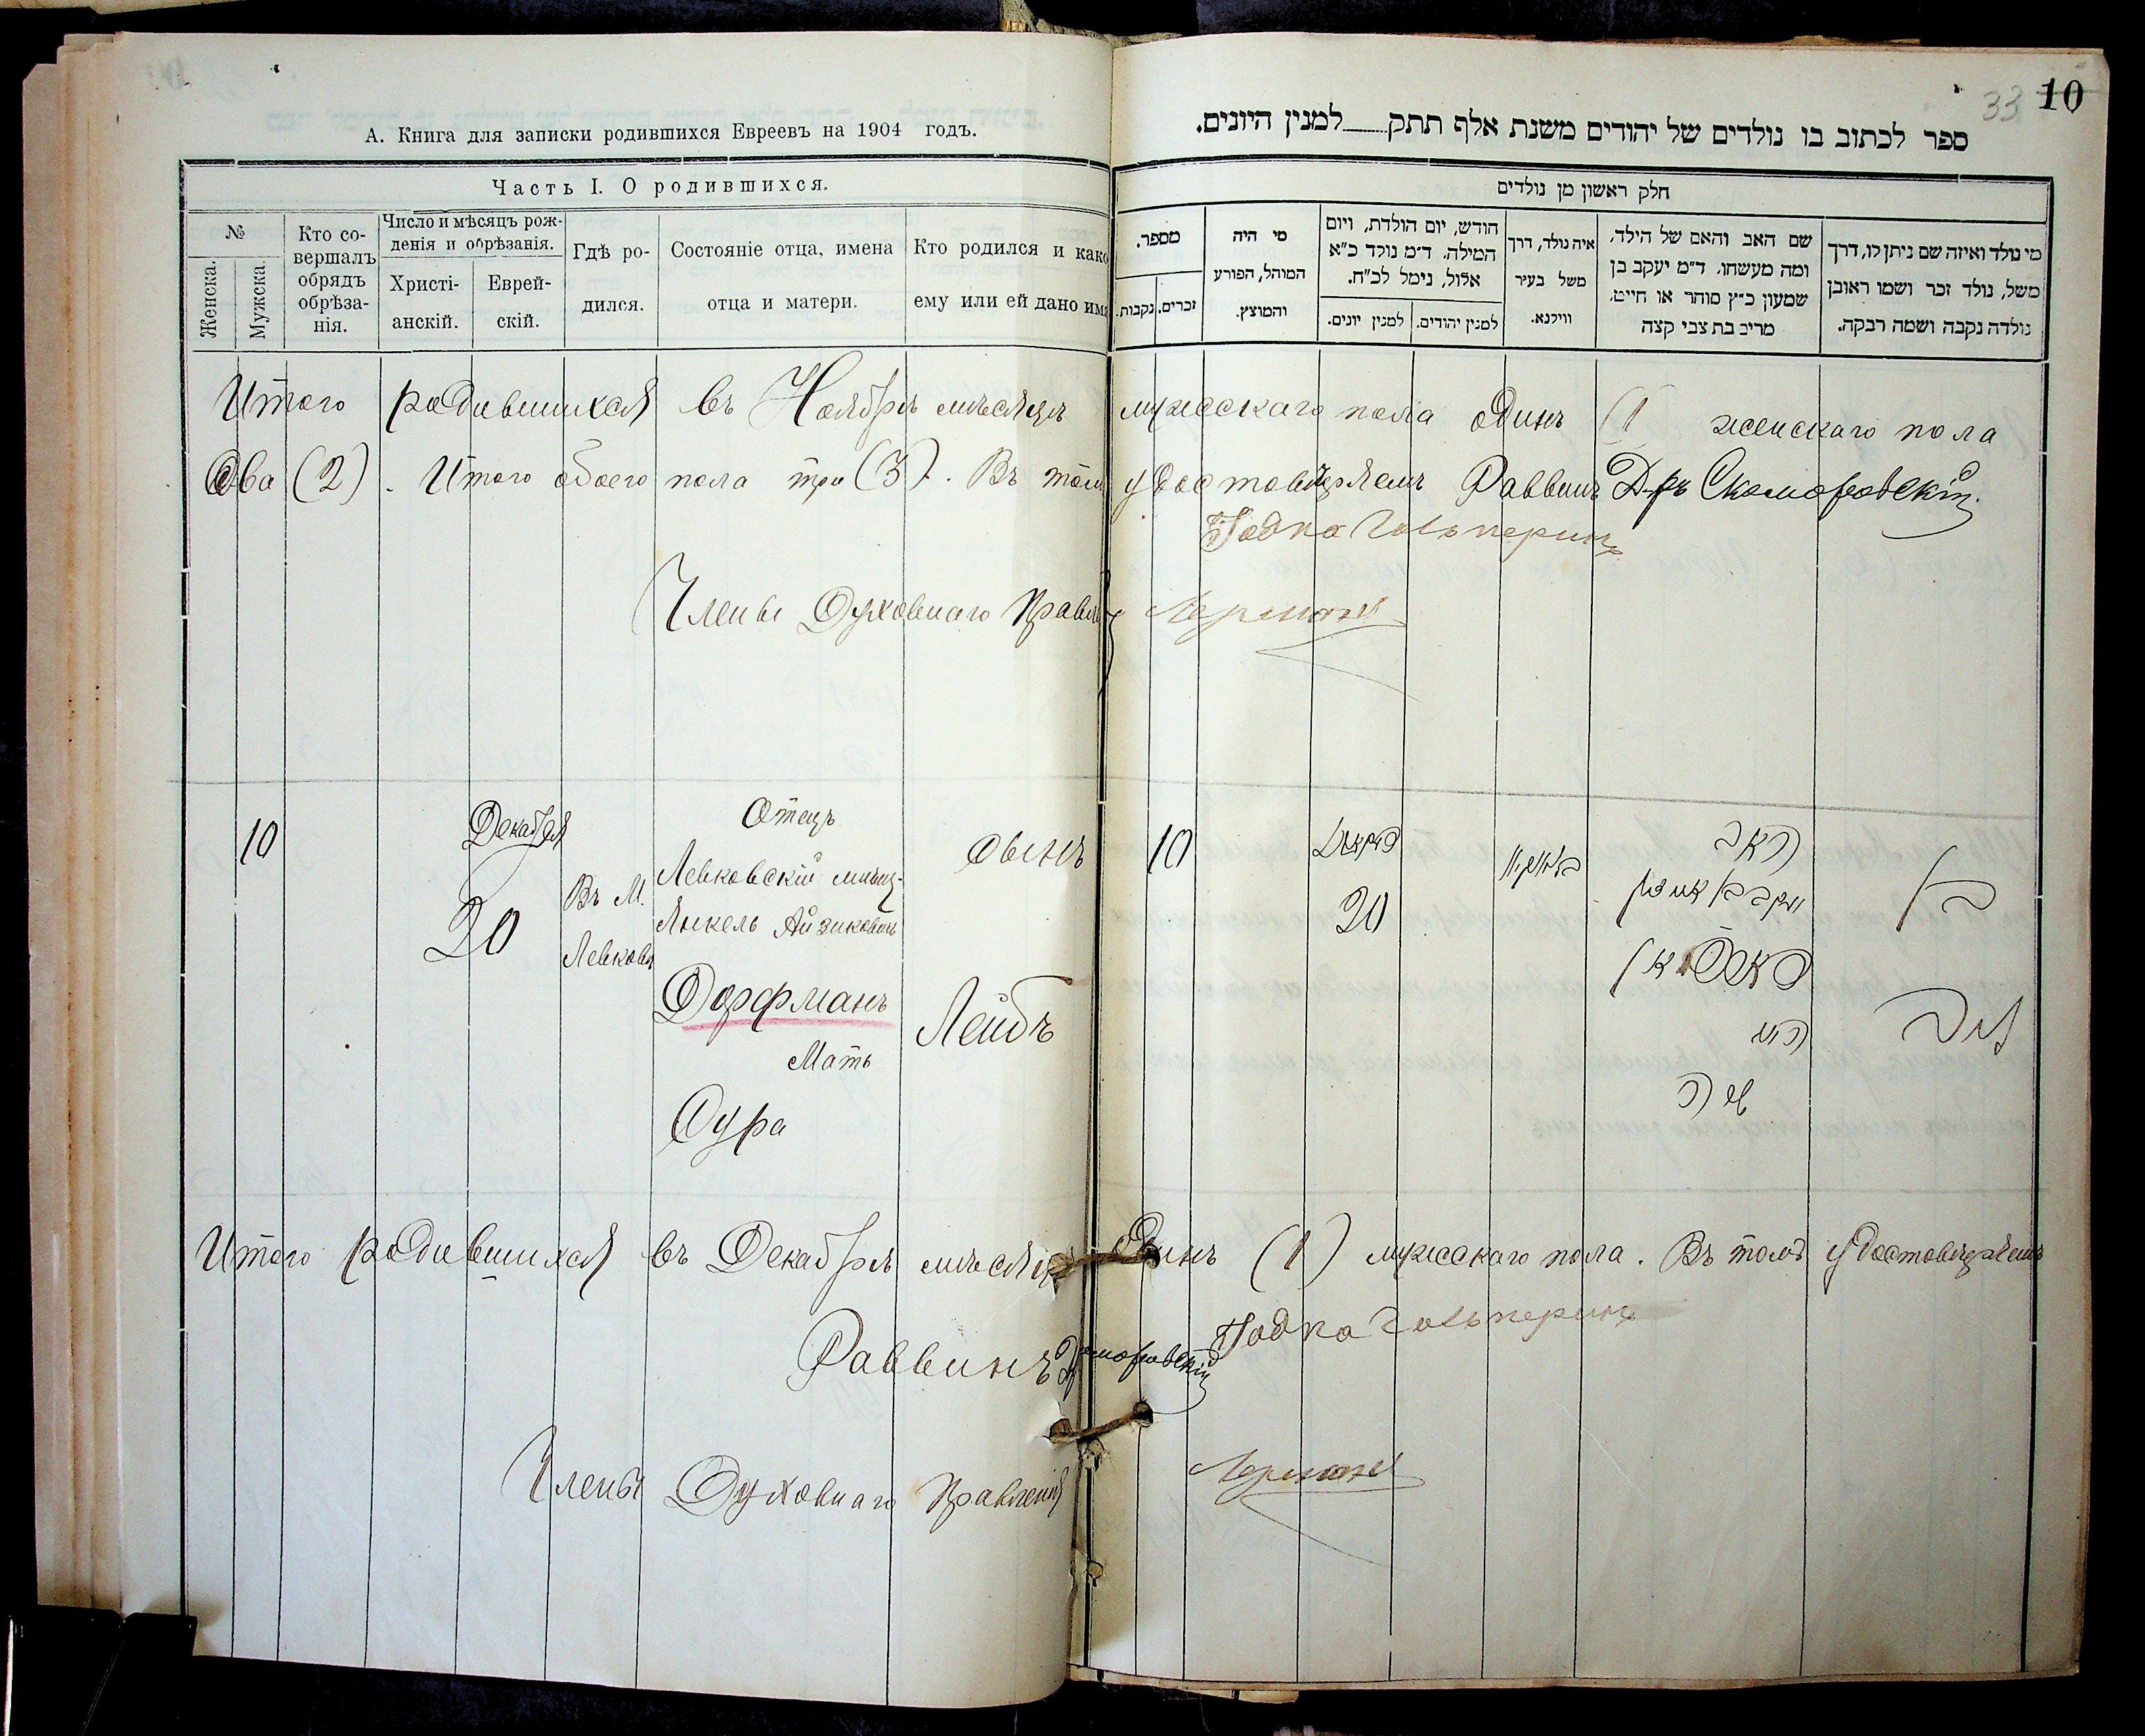 А. Книга для записки родившихся Евреевъ на 1904 годъ.
Часть I. О родившихся.
№
Женска.
Мужска.
Кто со-
вершалъ
обрядъ
обрѣза-
нія.
Число и мѣсяцъ рож-
денія и обрѣзанія.
Христі-
анскій.
Еврей-
скій.
Гдѣ ро-
дился.
Состояніе отца, имена
отца и матери.
Кто родился и како
ему или ей дано имя
Итого родившихся въ Ноябрѣ мѣсяцѣ
два (2). Итого обоего пола три (3). Въ томъ
Члены Духовнаго Правле
10
Декабря
20
Въ М.
Левковъ
Отецъ
Левковскій мѣщ-
Янкель Айзиковичъ
Дорфманъ
Мать
Сура
сынъ
Лейбъ
Итого родившихся въ Декабрѣ мѣсяцѣ
Раввинъ
Члены Духовнаго Правленія
33 10
ספר לכתוב בו נולדים של יהודים משנת אלף תתק למנין היונים.
חלק ראשון מן נולדים
מי נולד ואיזה שם ניתן לו, דרך
משל, נולד זכר ושמו ראובן
נולדה נקבה ושמה רבקה.
שם האב והאם של הילד,
ומה מעשהו. ד״מ יעקב בן
שמעון כ״ץ סוחר או חייט,
מרים בת צבי קצה
איה נולד, דרך
משל בעיר
ווילנא.
חודש, יום הולדת, ויום
המילה. ד״מ נולד כ״א
אלול, נימל לכ״ח.
למנין יהודים.
למנין יונים.
מי היה
המוהל, הפורע
והמוצץ.
מספר.
זכרים.
נקבות.
мужескаго пола одинъ (1 женскаго пола
удостовѣряемъ Раввинъ Д-ръ Скоморовскій.
Годка Гальперинъ
Лерманъ
10
20
האב
יעקב בן
האם
שרה
בן
ליב
одинъ (1) мужескаго пола. Въ томъ удостовѣряемъ
Годка Гальперинъ
Скоморовскій
Лерманъ